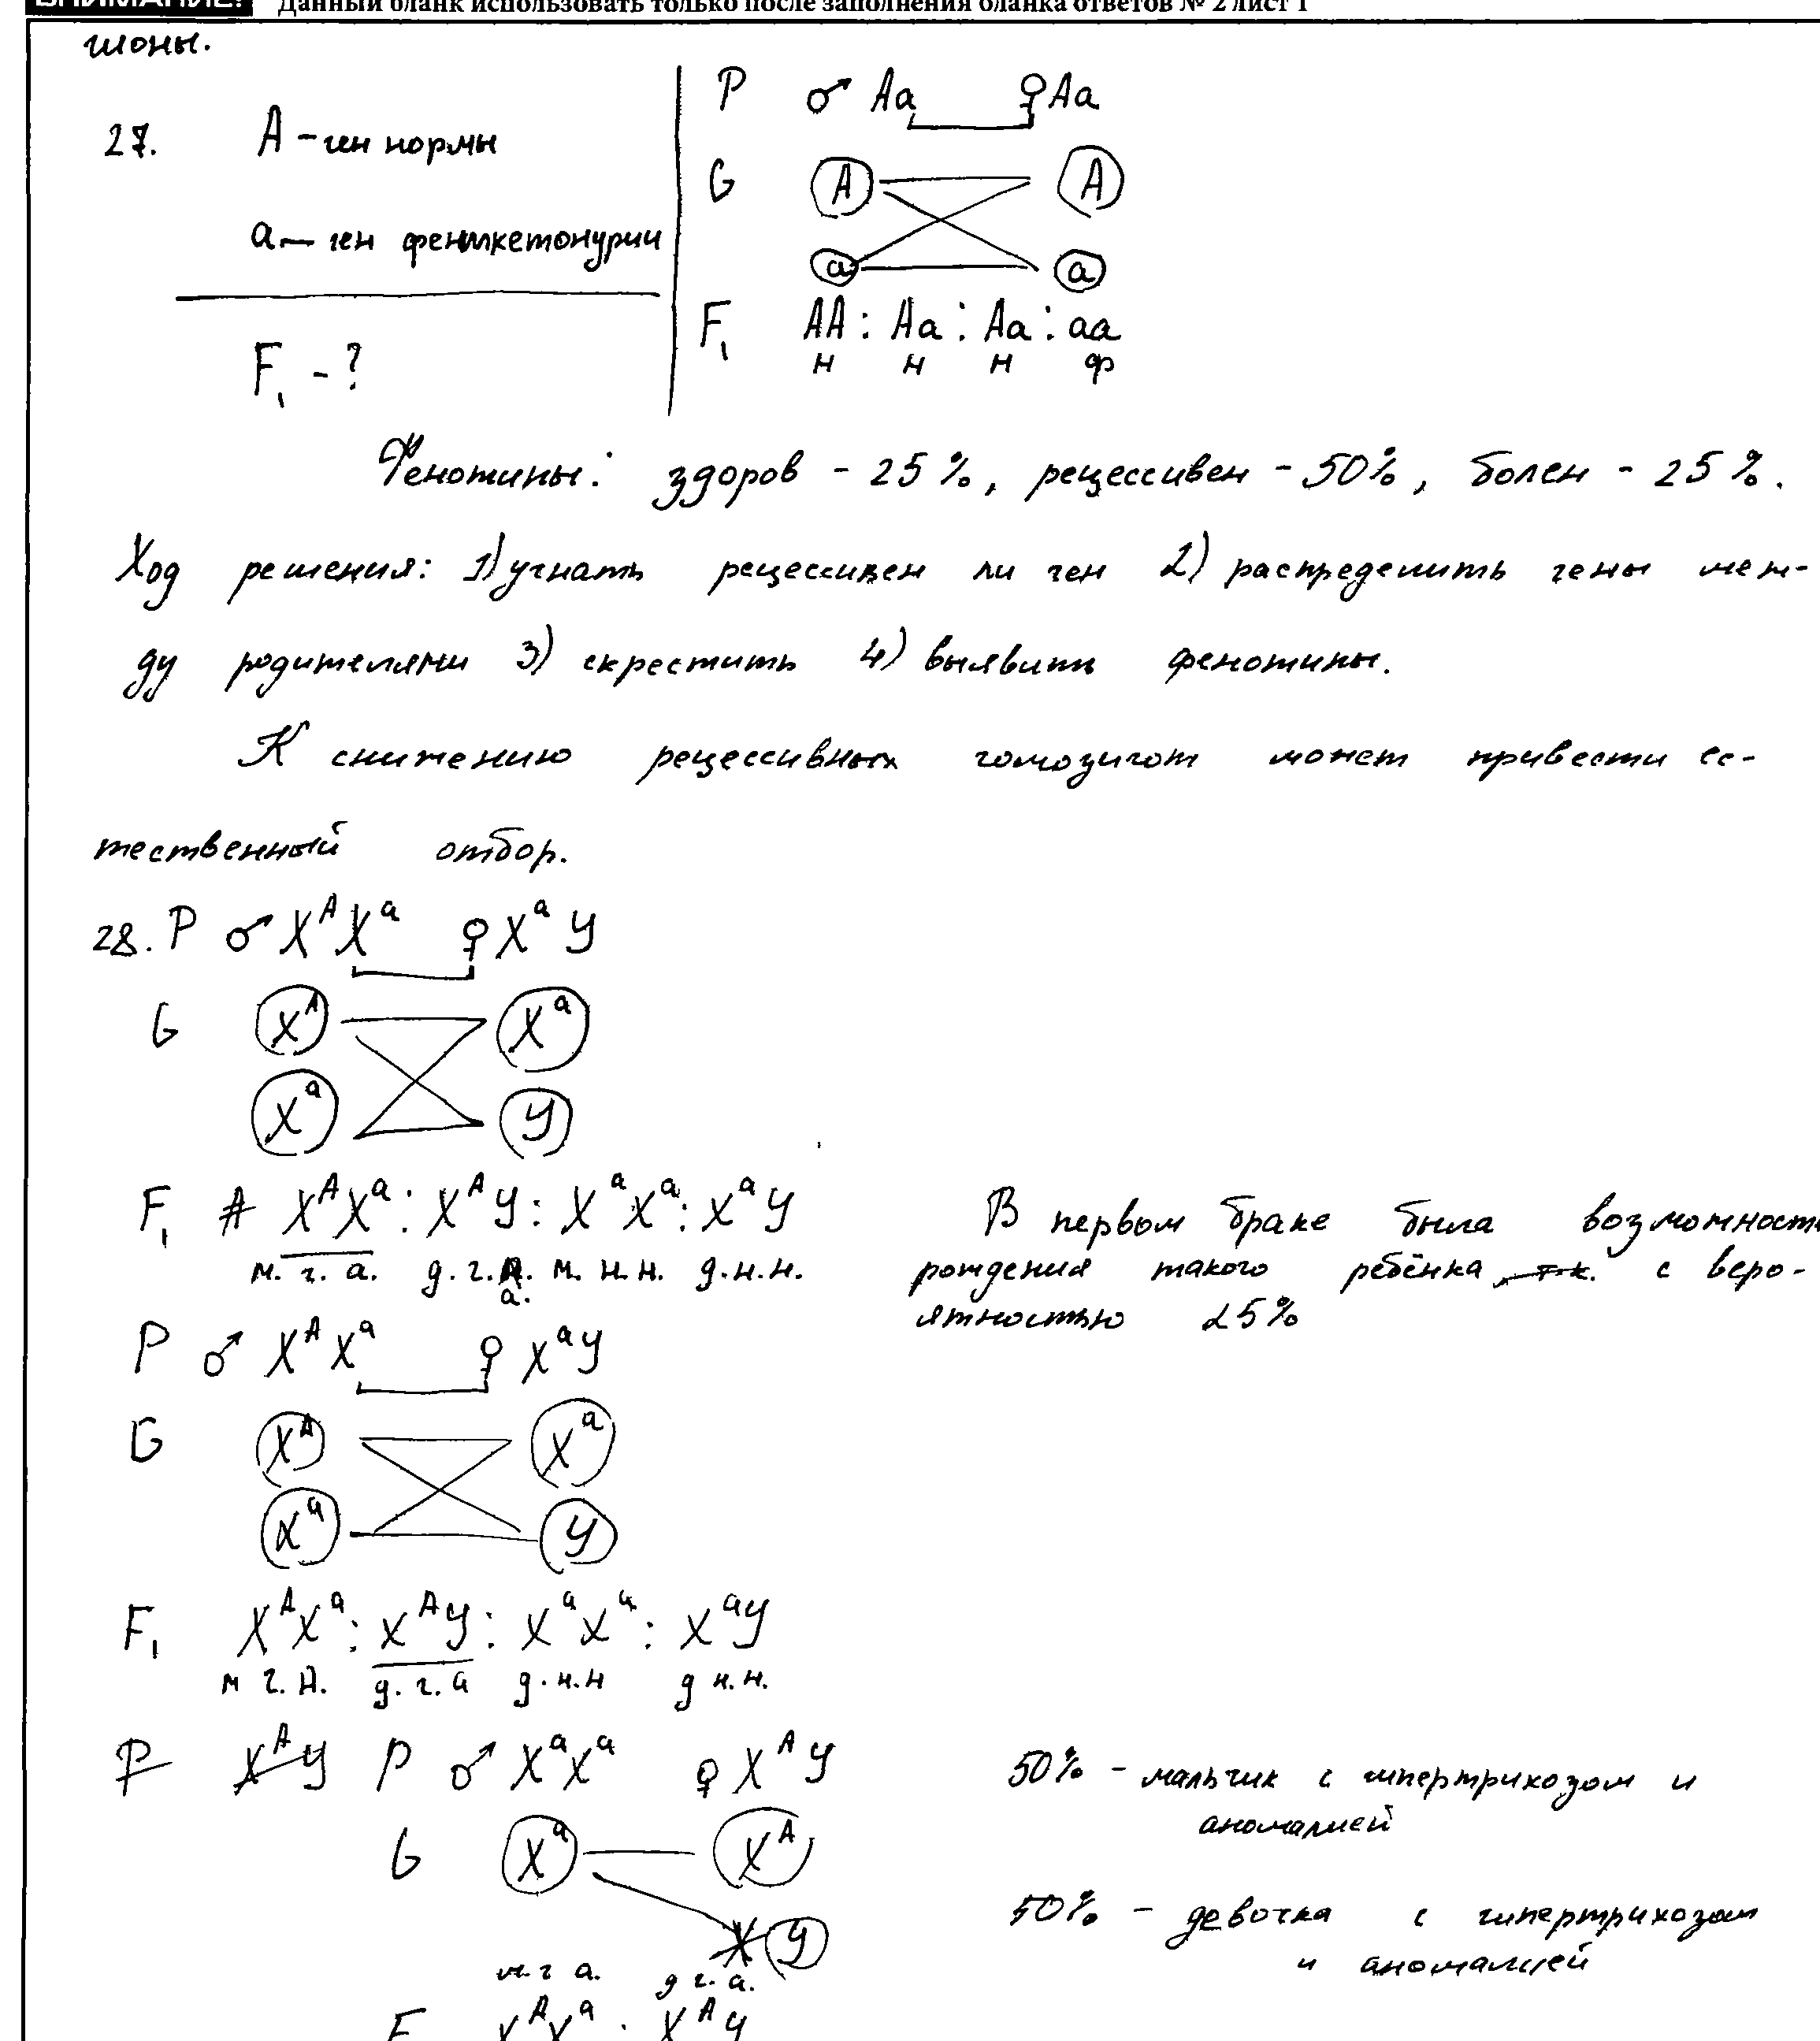 ВНИМАНИЕ! Данный бланк использовать только после заполнения бланка ответов № 2 лист 1
шоны.
27. A – ген нормы
a – ген фенилкетонурии
F₁ - ?
P ♂ Aa ♀ Aa
G A A
a a
F₁ AA : Aa : Aa : aa
н н н ф
Фенотипы: здоров - 25 %, рецессивен - 50%, болен - 25 %.
Ход решения: 1) узнать рецессивен ли ген 2) распределить гены меж-
ду родителями 3) скрестить 4) выявить фенотипы.
К снижению рецессивных гомозигот может привести ес-
тественный отбор.
28. P ♂ XᴬXᵃ ♀ XᵃY
G Xᴬ Xᵃ
Xᵃ Y
F₁ A XᴬXᵃ : XᴬY : XᵃXᵃ : XᵃY
м. г. а. д. г. а. м. н. н. д. н. н.
В первом браке была возможность
рождения такого ребёнка, т.к. с веро-
ятностью 25%
P ♂ XᴬXᵃ ♀ XᵃY
G Xᴬ Xᵃ
Xᵃ Y
F₁ XᴬXᵃ : XᴬY : XᵃXᵃ : XᵃY
м г. н. д. г. а д. н. н д н. н.
P XᴬY P ♂ XᵃXᵃ ♀ XᴬY
G Xᵃ Xᴬ
X Y
м. г а. д г. а.
F XᴬXᵃ : XᴬY
50% - мальчик с гипертрихозом и
аномалией
50% - девочка с гипертрихозом
и аномалией